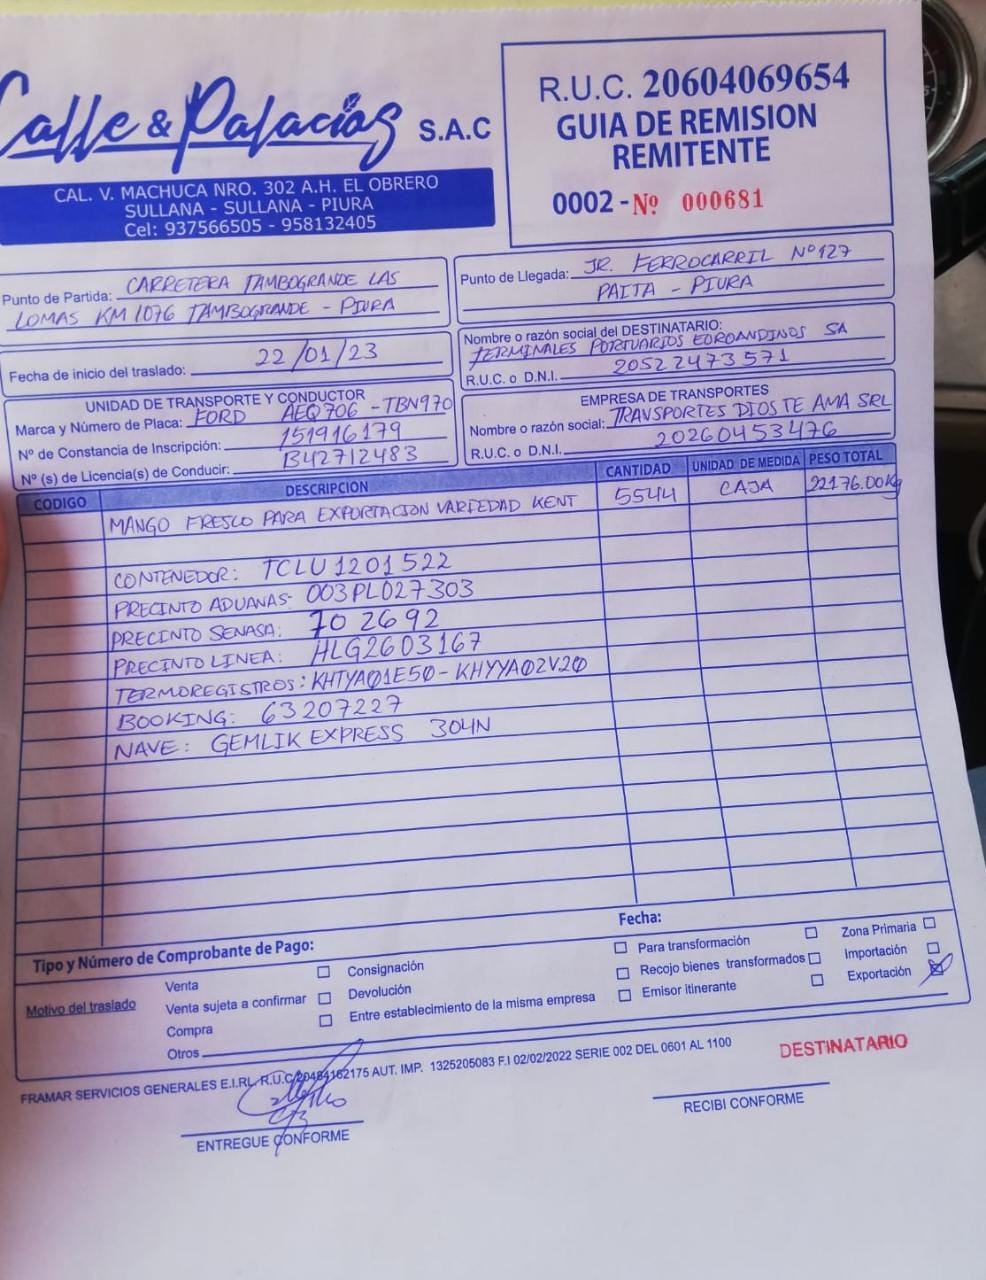 Calle & Palacios S.A.C
CAL. V. MACHUCA NRO. 302 A.H. EL OBRERO
SULLANA - SULLANA - PIURA
Cel: 937566505 - 958132405
R.U.C. 20604069654
GUIA DE REMISION
REMITENTE
0002 - Nº 000681
Punto de Partida: CARRETERA TAMBOGRANDE LAS
LOMAS KM 1076 TAMBOGRANDE - PIURA
Punto de Llegada: JR. FERROCARRIL Nº 127
PAITA - PIURA
Fecha de inicio del traslado: 22/01/23
Nombre o razón social del DESTINATARIO:
TERMINALES PORTUARIOS EUROANDINOS SA
R.U.C. o D.N.I. 20522473571
UNIDAD DE TRANSPORTE Y CONDUCTOR
Marca y Número de Placa: FORD AEQ706 - TBN970
Nº de Constancia de Inscripción: 151916179
Nº (s) de Licencia(s) de Conducir: B42712483
EMPRESA DE TRANSPORTES
Nombre o razón social: TRANSPORTES DIOS TE AMA SRL
R.U.C. o D.N.I. 20260453476
CODIGO DESCRIPCION CANTIDAD UNIDAD DE MEDIDA PESO TOTAL
MANGO FRESCO PARA EXPORTACION VARIEDAD KENT 5544 CAJA 22176.00Kg
CONTENEDOR: TCLU1201522
PRECINTO ADUANAS: 003PL027303
PRECINTO SENASA: 702692
PRECINTO LINEA: HLG2603167
TERMOREGISTROS: KHTYA01E50 - KHYYA02V20
BOOKING: 63207227
NAVE: GEMLIK EXPRESS 304N
Tipo y Número de Comprobante de Pago: Fecha:
Motivo del traslado
Venta
Venta sujeta a confirmar
Compra
Otros
Consignación
Devolución
Entre establecimiento de la misma empresa
Para transformación
Recojo bienes transformados
Emisor itinerante
Zona Primaria
Importación
Exportación
FRAMAR SERVICIOS GENERALES E.I.RL. R.U.C. 20484162175 AUT. IMP. 1325205083 F.I 02/02/2022 SERIE 002 DEL 0601 AL 1100
DESTINATARIO
ENTREGUE CONFORME
RECIBI CONFORME